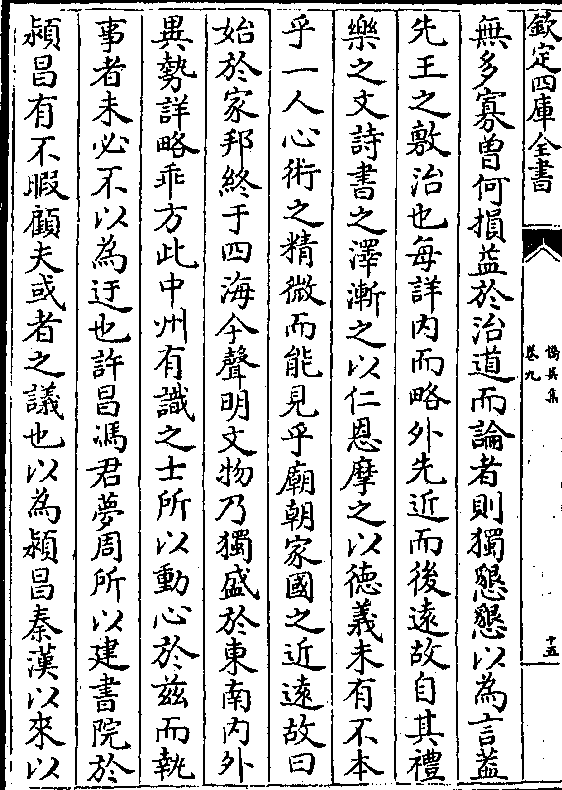 欽定四庫全書
僑吳集
卷九
十五
無多寡曾何損益於治道而論者則獨懇懇以為言葢
先王之敷治也每詳内而略外先近而後遠故自其禮
樂之文詩書之澤漸之以仁恩摩之以德義未有不本
乎一人心術之精微而能見乎廟朝家國之近遠故曰
始於家邦終于四海今聲明文物乃獨盛於東南内外
異勢詳略乖方此中州有識之士所以動心於兹而執
事者未必不以為迂也許昌馮君夢周所以建書院於
潁昌有不暇顧夫或者之議也以為潁昌秦漢以來以